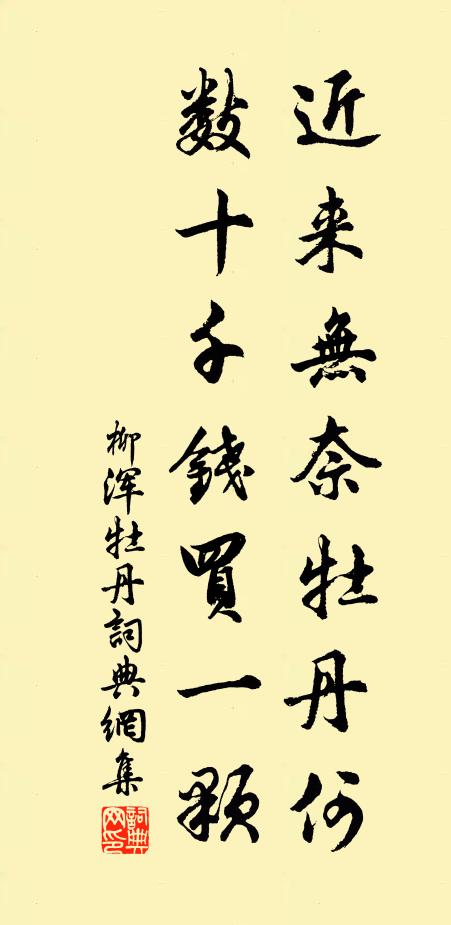 近来無奈牡丹何
数十千錢買一顆
柳浑牡丹詞典網集
詞典网印